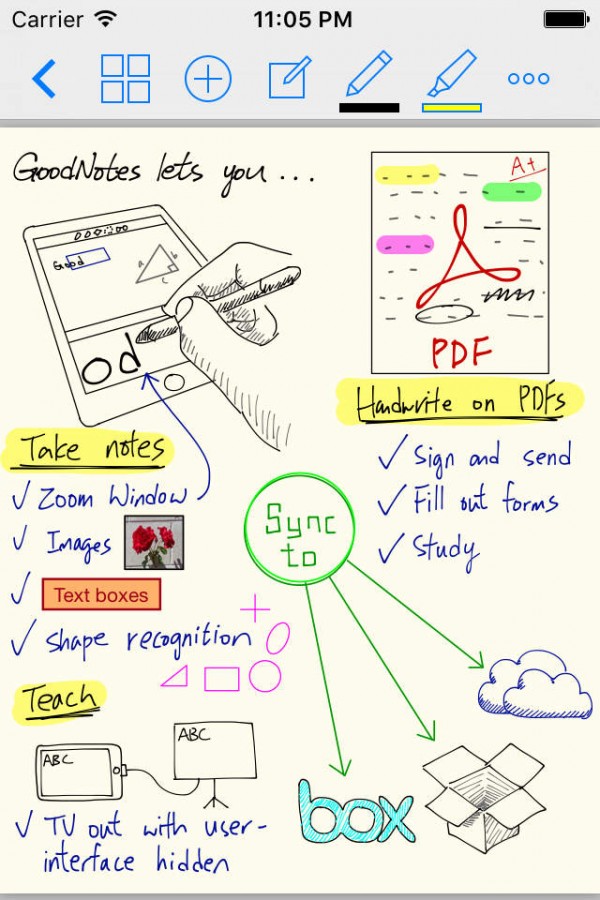 Carrier 11:05 PM
GoodNotes lets you ...
A+
Good
a
b
c
od
PDF
Handwrite on PDFs
Sign and send
Fill out forms
Study
Take notes
Zoom Window
Images
Text boxes
shape recognition
Sync
to
Teach
ABC
ABC
TV out with user-
interface hidden
box